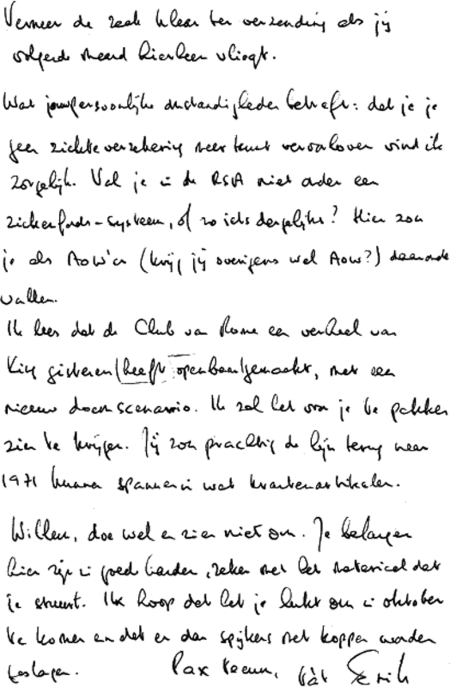 Vermeer de zaak klaar ter verzending als jij
volgende maand hierheen vliegt.
Wat jouw persoonlijke omstandigheden betreft: dat je je
geen ziekteverzekering meer kunt veroorloven vind ik
zorgelijk. Val je in de RSA niet onder een
ziekenfonds-systeem, of zo iets dergelijks? Hier zou
je als AOW'er (krijg jij overigens wel AOW?) daaronder
vallen.
Ik lees dat de Club van Rome een verhaal van
King gisteren heeft openbaar gemaakt, met een
nieuw doemscenario. Ik zal het voor je te pakken
zien te krijgen. Jij zou prachtig de lijn terug naar
1971 kunnen spannen in wat krantenartikelen.
Willem, doe wel en zie niet om. Je belangen
hier zijn in goede handen, zeker met het materiaal dat
je stuurt. Ik hoop dat het je lukt om in oktober
te komen en dat er dan spijkers met koppen worden
geslagen. Pax tecum, Erik